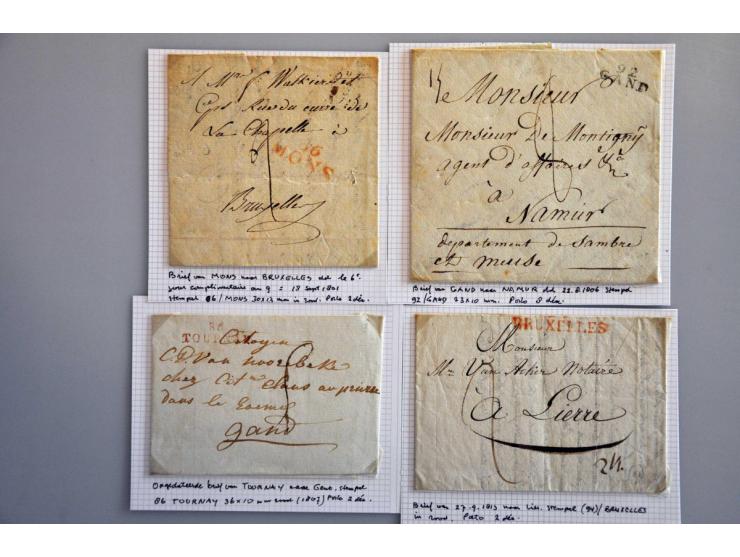 A Mr
Rue du curé de
La Chapelle à
86
MONS
Bruxelles
Brief van MONS naar BRUXELLES dd. le 6e
jour complimentaire an 9 = 18 sept 1801
stempel 86/MONS 30x13 mm in rood. Porto 2 déc.
92
GAND
Monsieur
Monsieur De Montigny
agent d'affaires
à
Namur
département de Sambre
et meuse
Brief van GAND naar NAMUR dd 22.8.1806 stempel
92/GAND 23x10 mm. Porto 8 déc.
86
Citoyen
C.D. Van
chez Cit
dans le
gand
Ongedateerde brief van TOURNAY naar Gent. stempel
86 TOURNAY 36x10 mm rood (1802) Porto 2 déc.
BRUXELLES
Monsieur
Mr Van Acker Notaire
à Lierre
Brief van 27.9.1813 naar Lier. stempel (94)/BRUXELLES
in rood. Porto 2 déc.